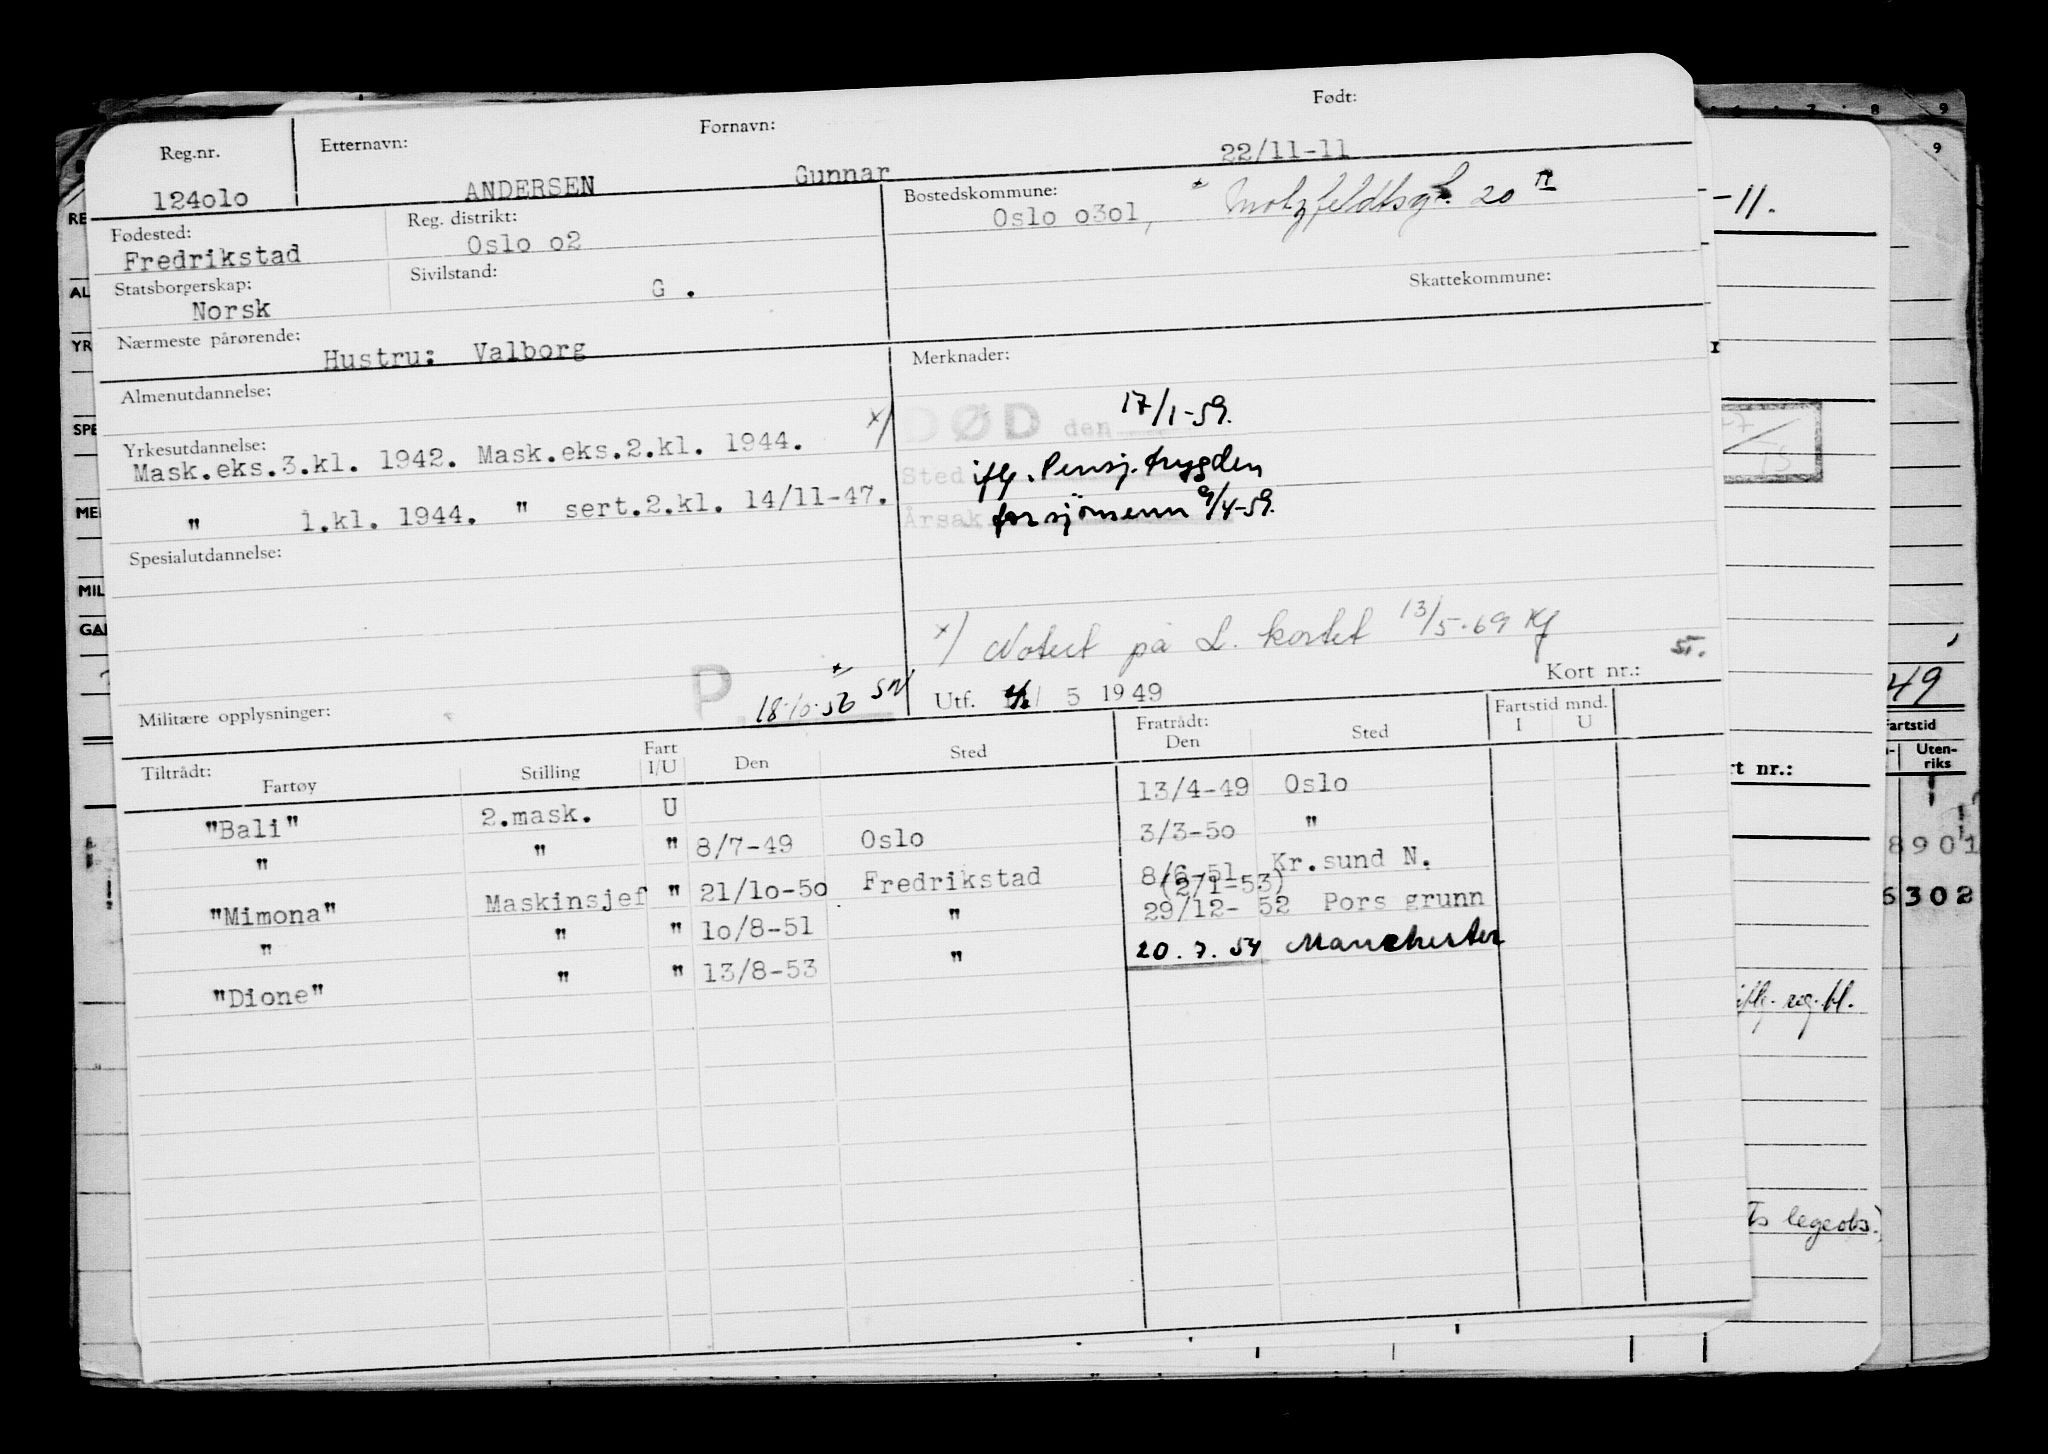 Reg.nr. Etternavn: Fornavn: Født:
124olo ANDERSEN Gunnar 22/11-11
Fødested: Reg. distrikt: Bostedskommune:
Fredrikstad Oslo o2 Oslo o3ol, Motzfeldtsgt. 20
Statsborgerskap: Sivilstand: Skattekommune:
Norsk G .
Nærmeste pårørende: Hustru: Valborg
Merknader:
Almenutdannelse:
DØD den 17/1-59.
Yrkesutdannelse: x/
Mask.eks.3.kl. 1942. Mask.eks.2.kl. 1944.
Sted iflg. Pensj. trygden
" 1.kl. 1944. " sert.2.kl. 14/11-47.
Årsak for sjömenn 9/4-59.
Spesialutdannelse:
x/ Notert på L. kortet 13/5-69
P. 18-10-56 SN
Militære opplysninger: Utf. 5 1949 Kort nr.: 5.
Tiltrådt: Fratrådt: Fartstid mnd.
Fartøy Stilling Fart I/U Den Sted Den Sted I U
"Bali" 2.mask. U 13/4-49 Oslo
" " " 8/7-49 Oslo 3/3-5o "
"Mimona" Maskinsjef " 21/lo-5o Fredrikstad 8/6-51 Kr.sund N.
(2/1-53)
" " " lo/8-51 " 29/12- 52 Pors grunn
"Dione" " " 13/8-53 " 20.7.54 Manchester
-11.
49
artstid
Uten-
riks
rt nr.:
8901
6302
iflg. reg.bl.
ts legeobs.
RE
AL
YR
SPE
MIL
GAI
9
8 9